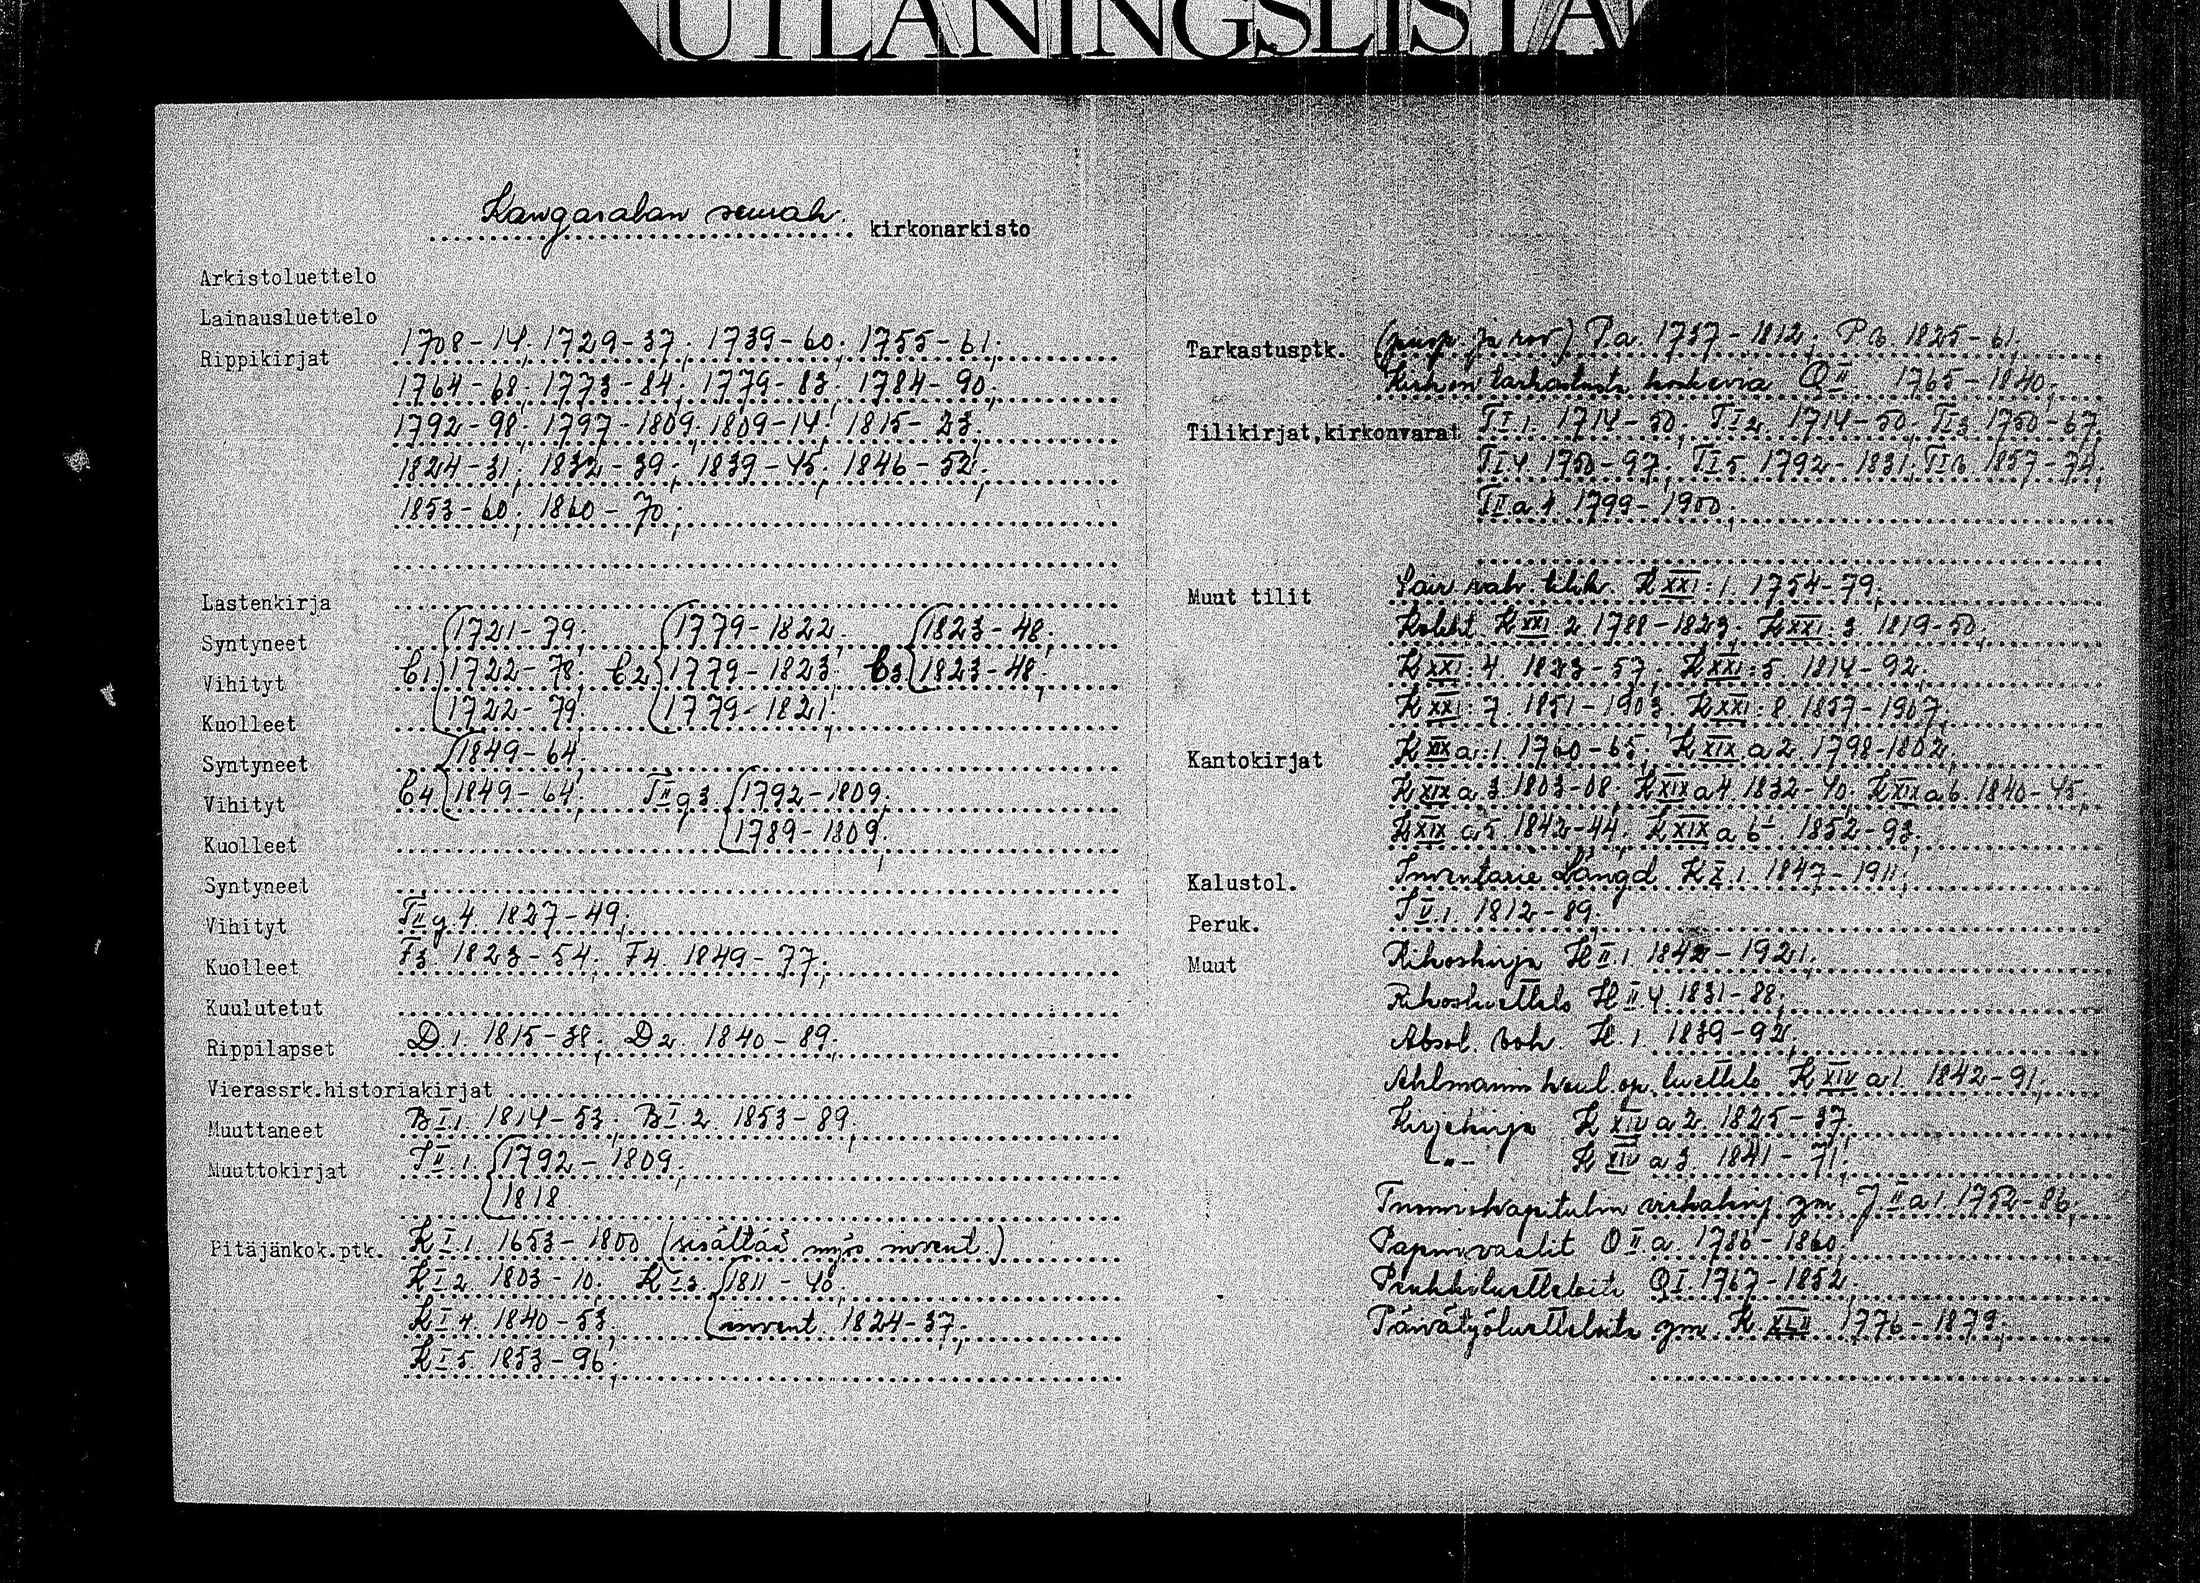 UTLÅNINGSLISTA
Kangasalan seurak. kirkonarkisto
Arkistoluettelo
Lainausluettelo
Rippikirjat 1708-14; 1729-37; 1739-60; 1755-61;
1764-68; 1773-84; 1779-83; 1784-90;
1792-98; 1797-1809; 1809-14; 1815-23;
1824-31; 1832-39; 1839-45; 1846-52;
1853-60; 1860-70;
Lastenkirja
Syntyneet 1721-79; 1779-1822; 1823-48;
Vihityt C1 1722-78; C2 1779-1823; C3 1823-48;
Kuolleet 1722-79; 1779-1821;
Syntyneet 1849-64;
Vihityt C4 1849-64; TII g3 1792-1809;
Kuolleet 1789-1809;
Syntyneet
Vihityt TII g 4 1827-49;
Kuolleet F3 1823-54; F4 1849-77;
Kuulutetut
Rippilapset D.1. 1815-38; D2. 1840-89;
Vierassrk.historiakirjat
Muuttaneet B I.1. 1814-53; B I.2. 1853-89;
Muuttokirjat II.1. 1792-1809;
1818
Pitäjänkok.ptk. K I 1. 1653-1800 (sisältää myös invent.)
K I 2 1803-10; K I 3 1811-40;
K I 4. 1840-53; invent. 1824-37;
K I 5. 1853-96;
Tarkastusptk. (piisp. ja rov.) P a. 1737-1812; P b 1825-61
Kirkon tarkastusta koskevia Q II 1765-1840;
Tilikirjat,kirkonvarat TI.1. 1714-50; TI2 1714-50; TI3 1750-67;
TI4. 1750-97; TI5. 1792-1831; TI6 1857-74;
TII a 1 1799-1900;
Muut tilit Sair. K XXI:1. 1754-79;
Koleht. K XXI:2 1788-1823; K XXI:3 1819-50;
K XXI:4. 1823-57; K XXI:5. 1814-92;
K XXI:7. 1851-1903; K XXI:8 1857-1907;
Kantokirjat K XIX a:1. 1760-65; K XIX a 2 1798-1802;
K XIX a 3 1803-08; K XIX a 4 1832-40; K XIX a 6 1840-45;
K XIX a 5 1842-44; K XIX a 6 1852-93;
Kalustol. Inventarie Längd K X.1. 1847-1911;
Peruk. V.1. 1812-89;
Muut Rikoskirja H II.1. 1842-1921;
Rikosluettelo H II.4. 1831-88;
Absol. H.1. 1839-92;
Ahlmannin koul. op. luettelo K XIV a 1. 1842-91;
Kirjekirja K XIV a 2 1825-37;
-"- K XIV a 3. 1841-71;
Tuomiokapitulin virkakirj. ym. J II a 1 1752-86;
Papinvaalit O II a 1786-1860;
Penkkiluetteloita Q I. 1767-1852;
Päivätyöluetteloita ym. K XLII 1776-1879;